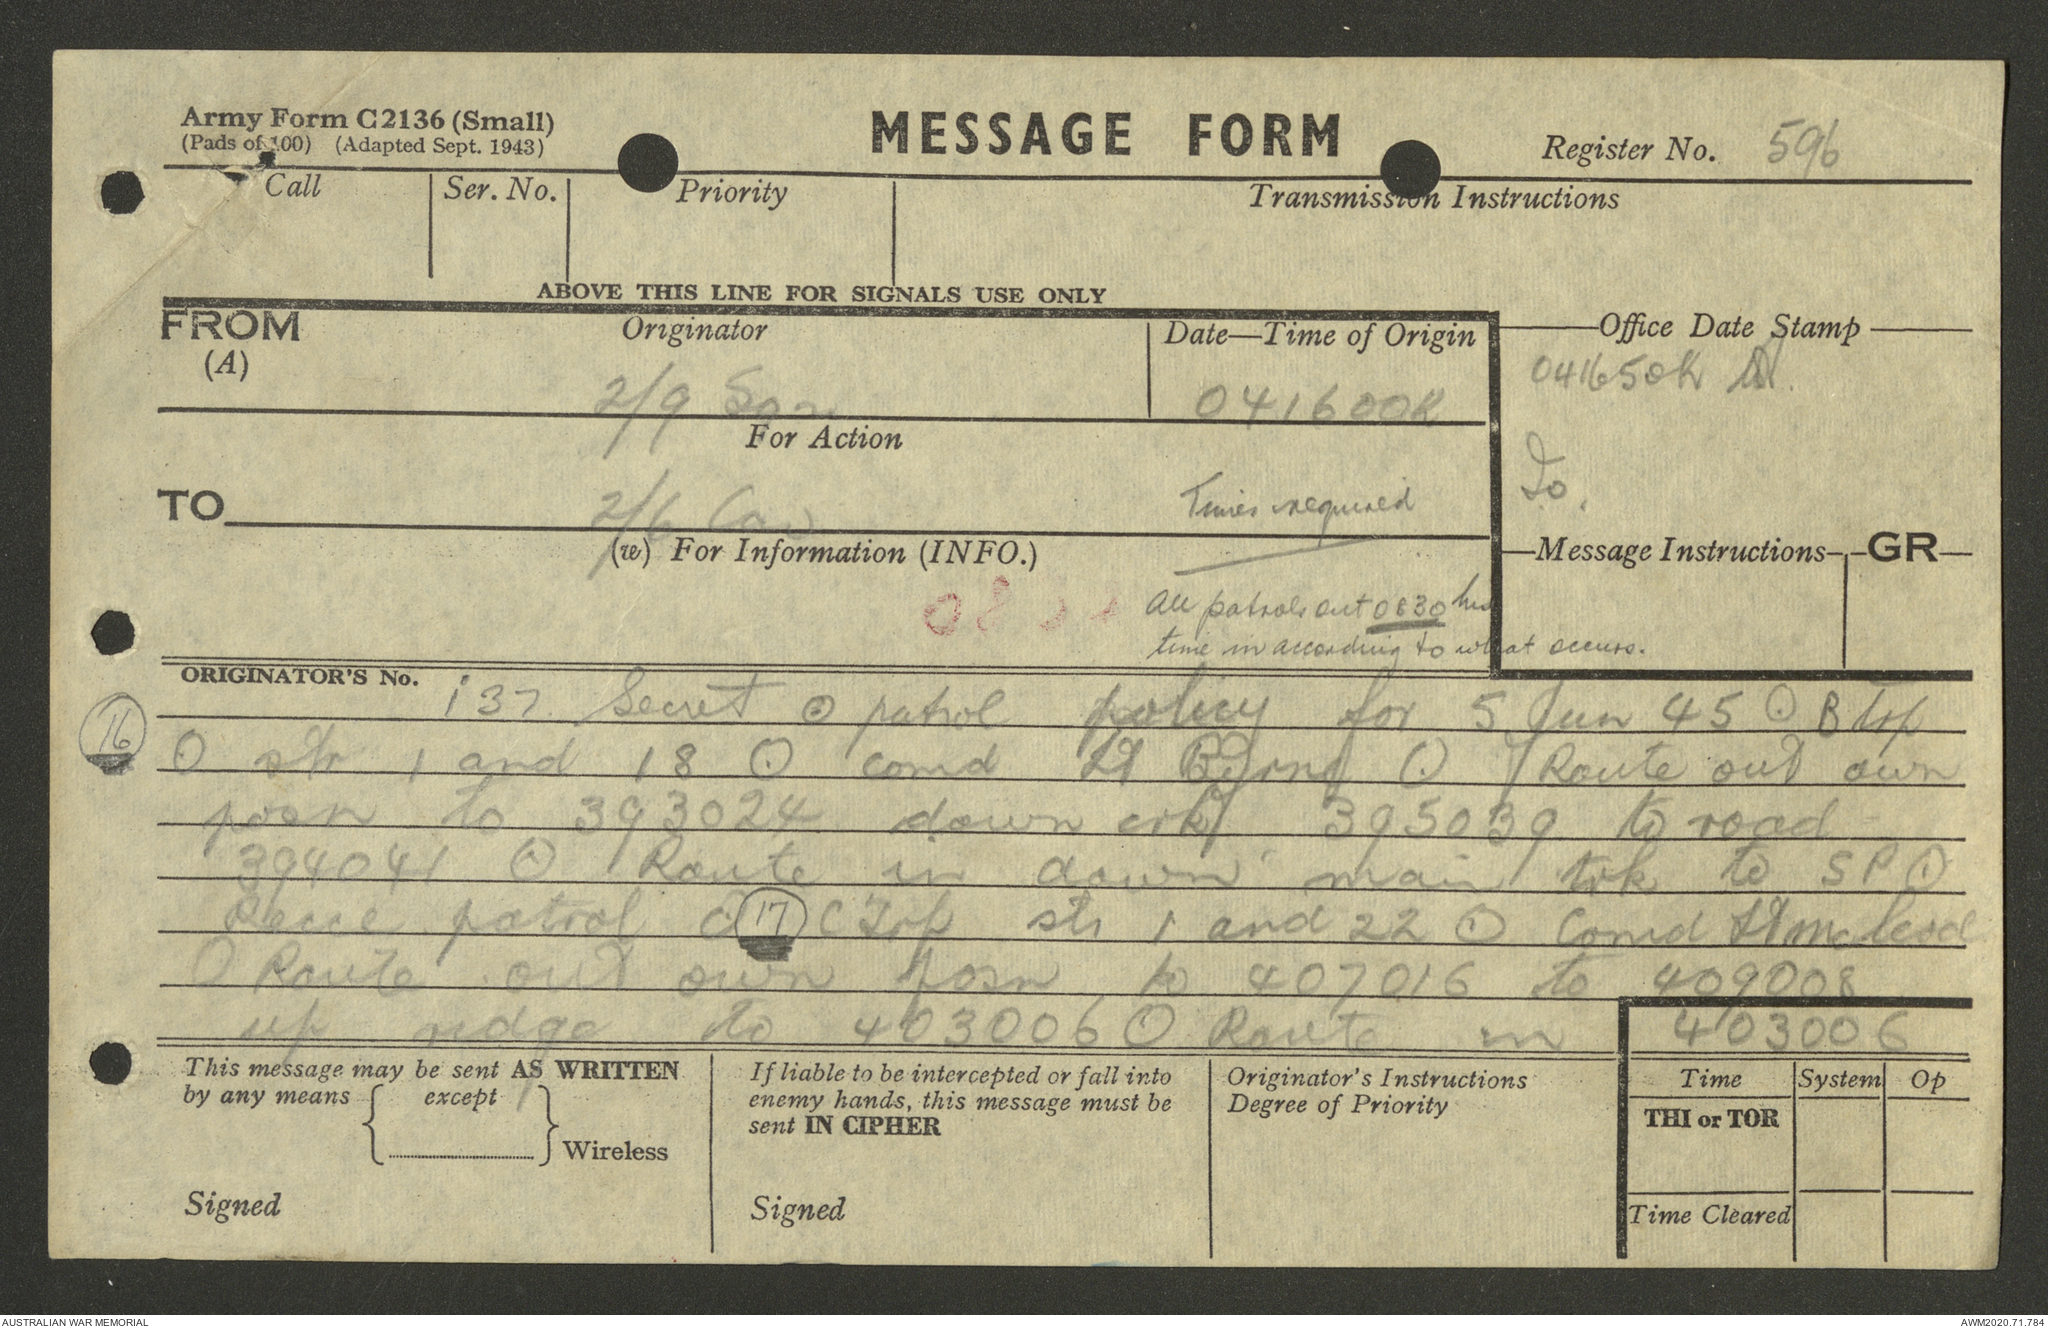 Army Form C2136 (Small)
(Pads of 100) (Adapted Sept. 1943)
MESSAGE FORM
Register No. 596
Call Ser. No. Priority Transmission Instructions
ABOVE THIS LINE FOR SIGNALS USE ONLY
FROM
(A)
Originator
2/9
Date—Time of Origin
041600K
Office Date Stamp
041650K
For Action
TO
2/6 Cav
Times required
Io.
(w) For Information (INFO.)
Message Instructions GR
08
All patrols out 0830 hrs
time in according to what occurs.
ORIGINATOR'S No.
137 Secret ⊙ patrol policy for 5 Jun 45 ⊙ B Trp
16
⊙ str 1 and 18 ⊙ comd Lt ⊙ Route out own
posn to 393024 down crk 395039 to road
394041 ⊙ Route in down main trk to SP ⊙
Recce patrol 17 C Trp str 1 and 22 ⊙ Comd Lt McLeod
⊙ Route out own posn to 407016 to 409008
up ridge to 403006 ⊙ Route in 403006
This message may be sent AS WRITTEN
by any means except
Wireless
Signed
If liable to be intercepted or fall into
enemy hands, this message must be
sent IN CIPHER
Signed
Originator's Instructions
Degree of Priority
Time System Op
THI or TOR
Time Cleared
AUSTRALIAN WAR MEMORIAL
AWM2020.71.784